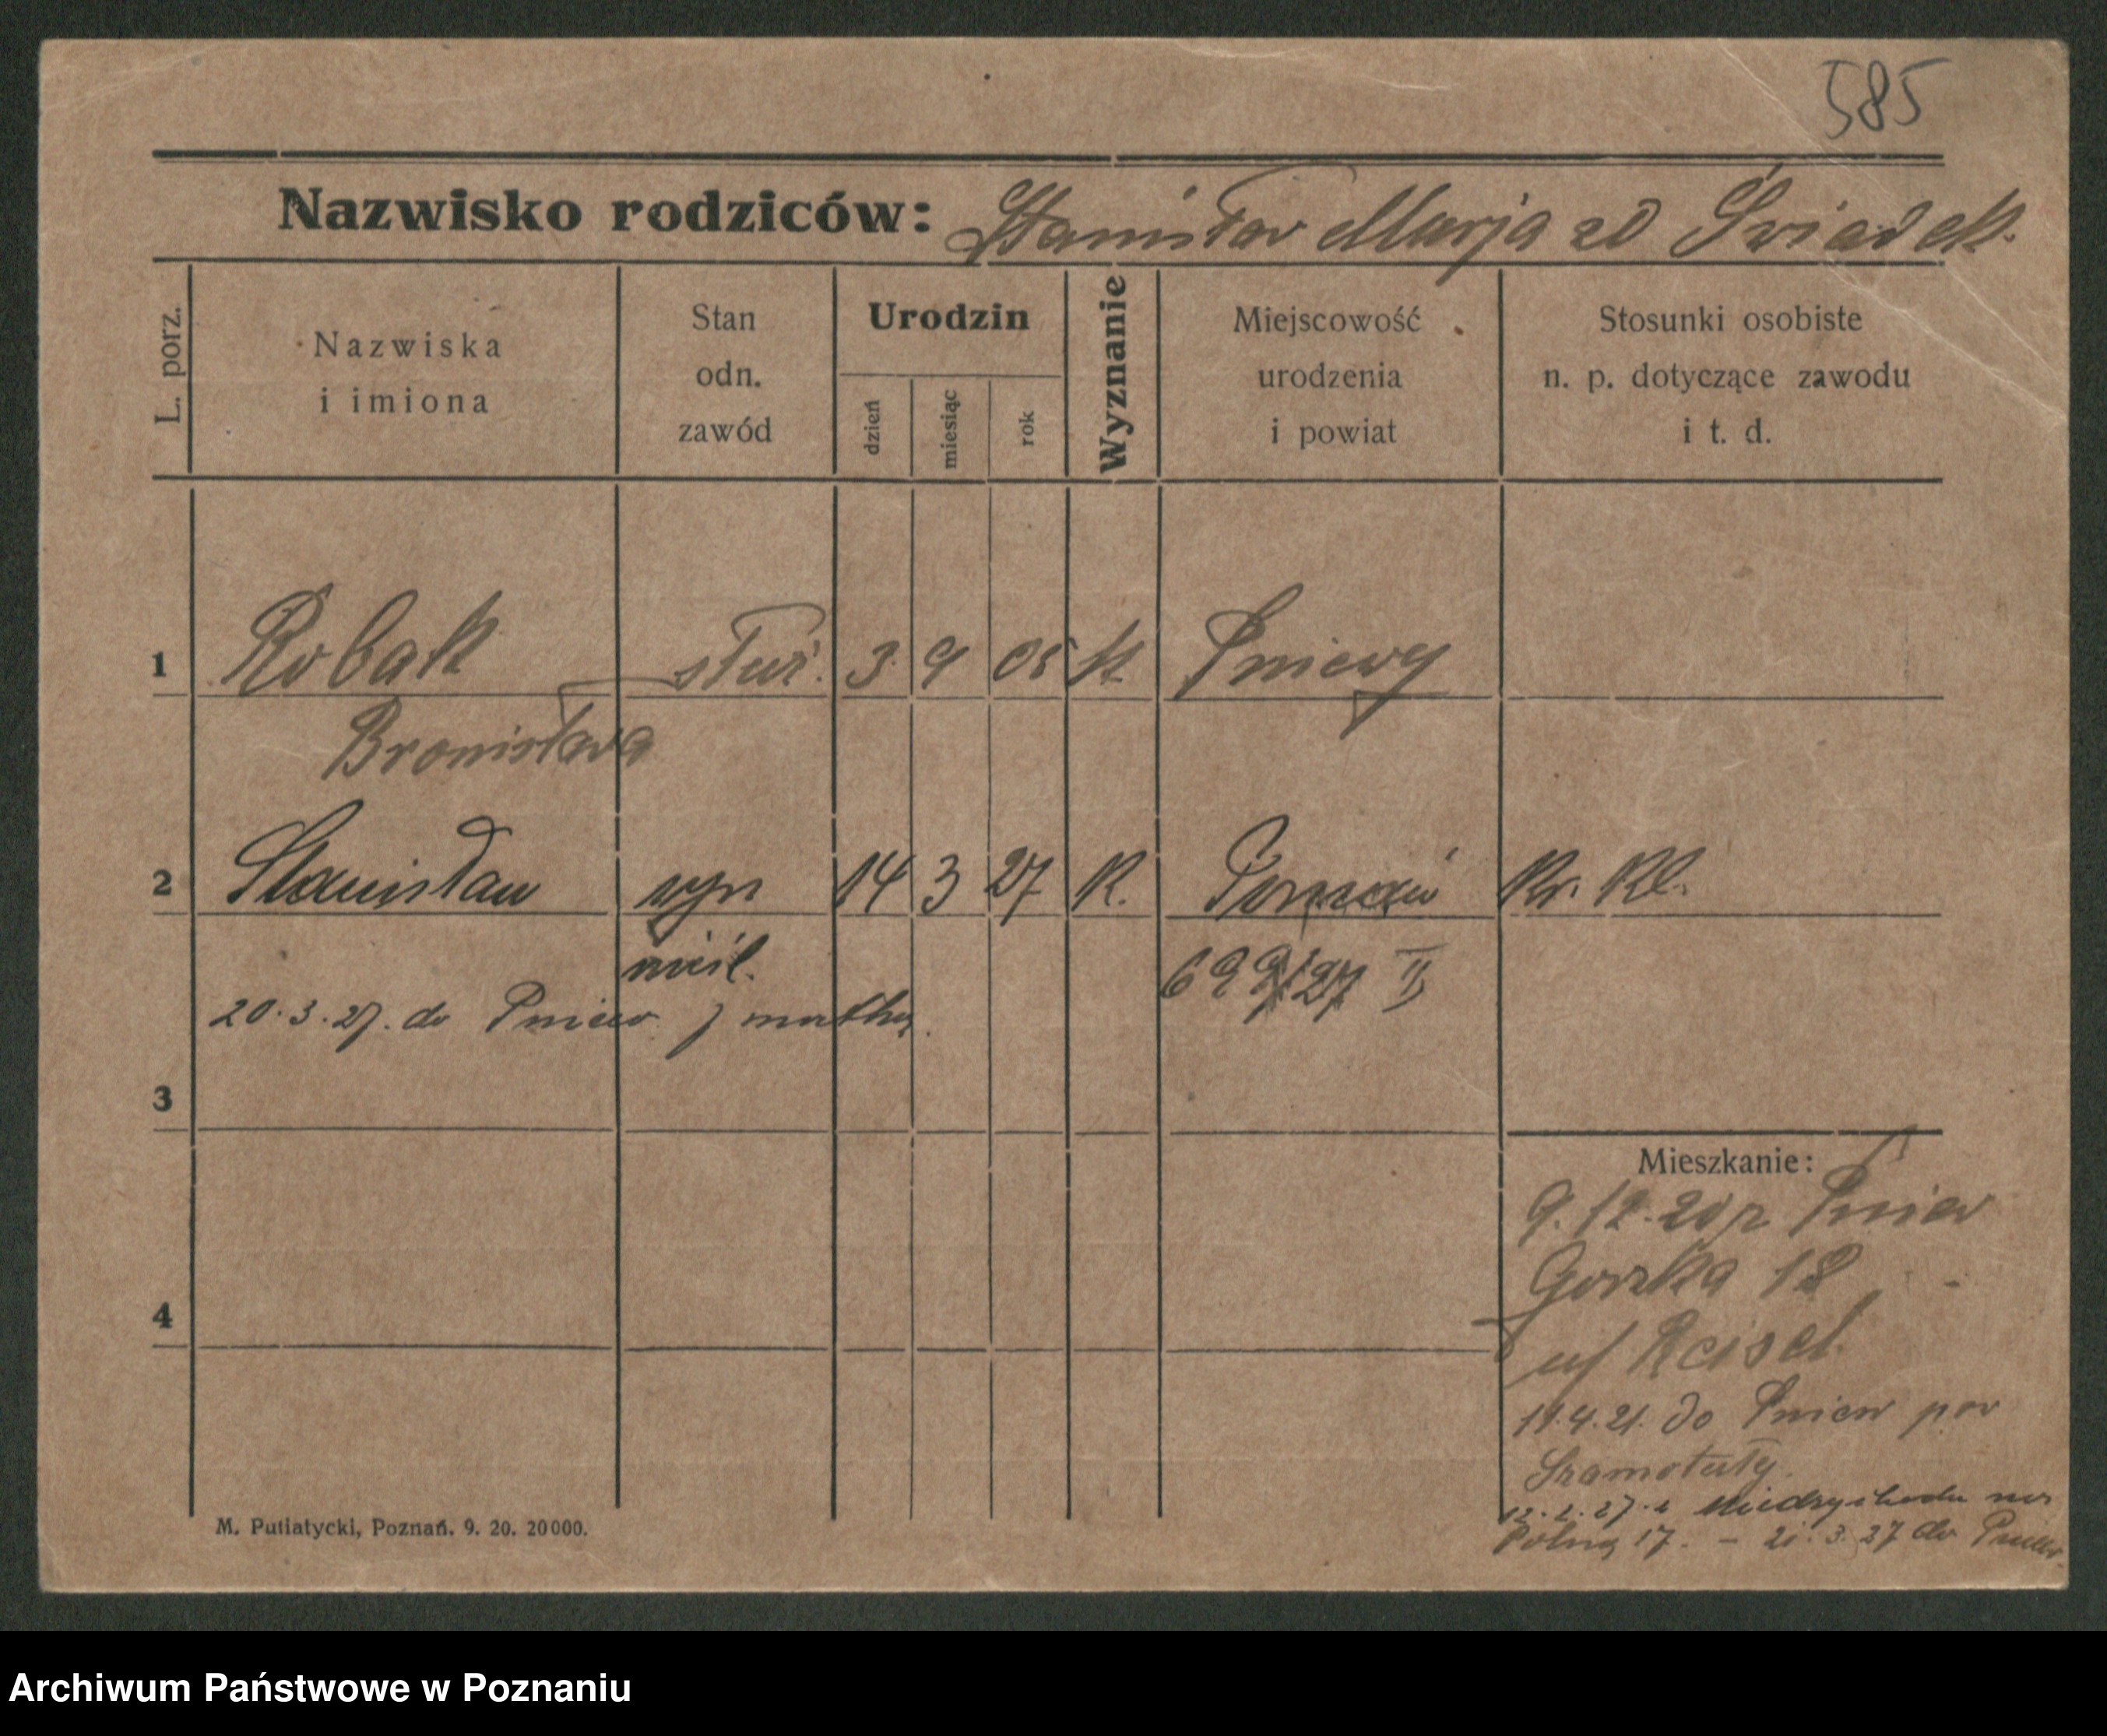 585
Nazwisko rodziców: Stanisław Marja zd Świadek.
L. porz.
Nazwiska
i imiona
Stan
odn.
zawód
Urodzin
dzień
miesiąc
rok
Wyznanie
Miejscowość
urodzenia
i powiat
Stosunki osobiste
n. p. dotyczące zawodu
i t. d.
1 Robak służ. 3. 9 05 k Pniewy
Bronisława
2 Stanisław syn 14 3 27 K. Poznań Kr. Kl.
nieśl. 699/27 II
20.3.27. do Pniew z matką.
3
Mieszkanie:
9.12.20 z Pniew
Gorzka 18
4
u/ Reisel.
11.4.21. do Pniew pow
Szamotuły
12.2.27. z Międzychodu
Polna 17. – 21.3.27 do Pniew.
M. Putiatycki, Poznań. 9. 20. 20000.
Archiwum Państwowe w Poznaniu